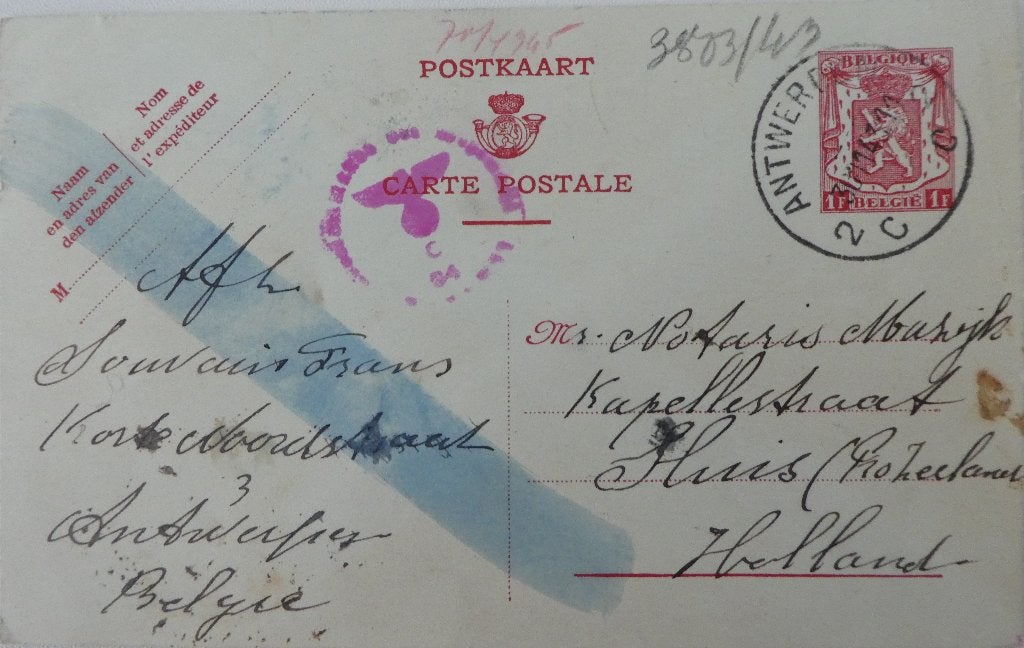 3803/43
POSTKAART
CARTE POSTALE
BELGIQUE
1F BELGIË 1F
ANTWERP
2 C C
Nom
et adresse de
l'expéditeur
Naam
en adres van
den afzender
M
C
Afz.
Souvain Frans
Korte Noordstraat
3
Antwerpen
Belgie
Mr. Notaris Muzijk
Kapellestraat
Sluis (
Holland